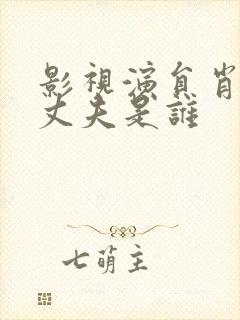 影視演員肖
丈夫是誰
七萌主